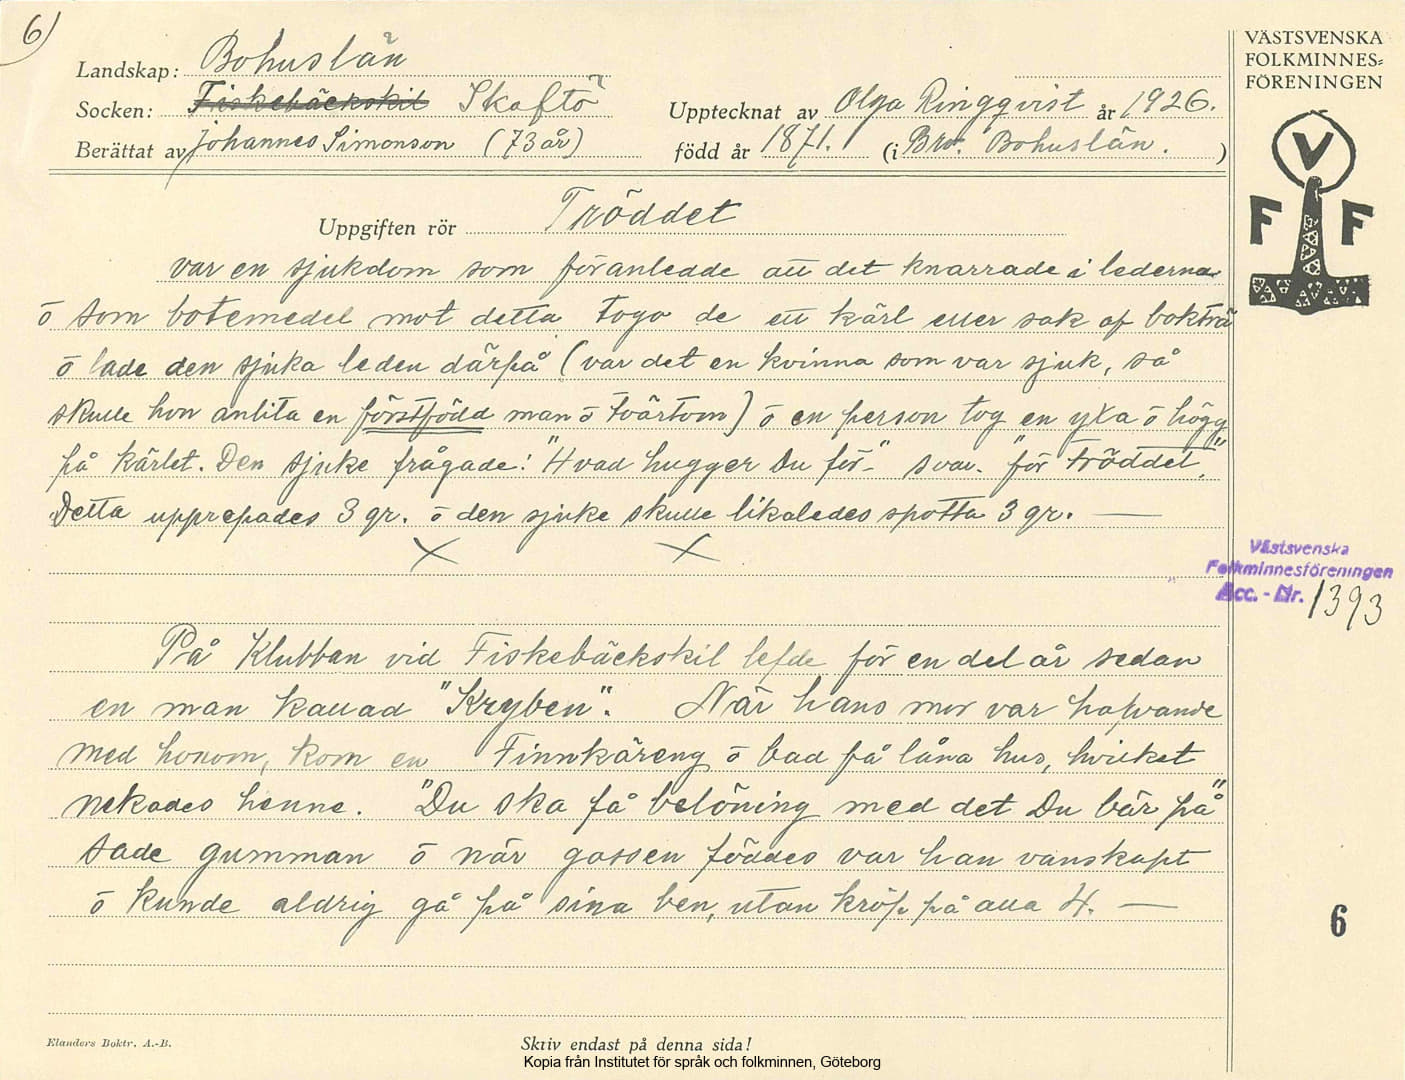 6)
VÄSTSVENSKA
FOLKMINNES=
FÖRENINGEN
V
F F
Landskap: Bohuslän
Socken: Fiskebäckskil Skaftö
Upptecknat av Olga Ringqvist år 1926.
Berättat av Johannes Simonson (73 år)
född år 1871. (i Bro. Bohuslän. )
Uppgiften rör Tröddet
var en sjukdom som föranledde att det knarrade i lederna
ō som botemedel mot detta togo de ett kärl eller sak af bokträ
ō lade den sjuka leden därpå (var det en kvinna som var sjuk, så
skulle hon anlita en förstfödd man ō tvärtom) ō en person tog en yxa ō högg
på kärlet. Den sjuke frågade: "Hvad hugger Du för"- svar. "för tröddet."
Detta upprepades 3 gr. ō den sjuke skulle likaledes spotta 3 gr. —
Västsvenska
Folkminnesföreningen
Acc. - Nr. 1393
På Klubban vid Fiskebäckskil lefde för en del år sedan
en man kallad "Kryben". När hans mor var hafvande
med honom, kom en Finnkäreng ō bad få låna hus, hvilket
nekades henne. "Du ska få belöning med det Du bär på"
sade gumman ō när gossen föddes var han vanskapt
ō kunde aldrig gå på sina ben, utan kröp på alla 4. —
6
Elanders Boktr. A.-B.
Skriv endast på denna sida!
Kopia från Institutet för språk och folkminnen, Göteborg